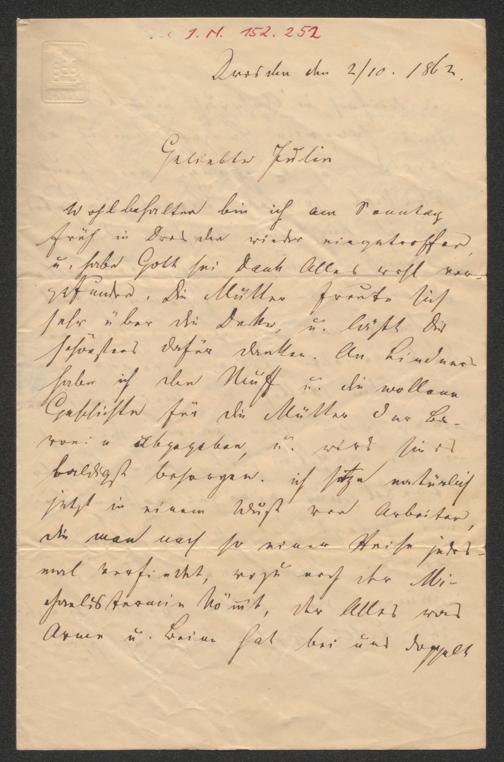 I. N. 152.252
Dresden den 2/10. 1862.
Geliebte Julie
Wohlbehalten bin ich am Sonntag
früh in Dresden wieder eingetroffen,
u. habe Gott sei Dank Alles wohl vor-
gefunden. Die Mutter freute sich
sehr über die Decke, u. läßt Dir
schönstens dafür danken. An Lindners
habe ich den Muff u. die wollene
Geschichte für die Mutter der Ba-
ronin abgegeben, u. wird sie es
baldigst besorgen. ich sitze natürlich
jetzt in einem Wust von Arbeiten,
die man nach so einer Reise jedes-
mal vorfindet, wozu noch der Mi-
chaelistermin kömt, der Alles was
Arme u. Beine hat bei uns doppelt